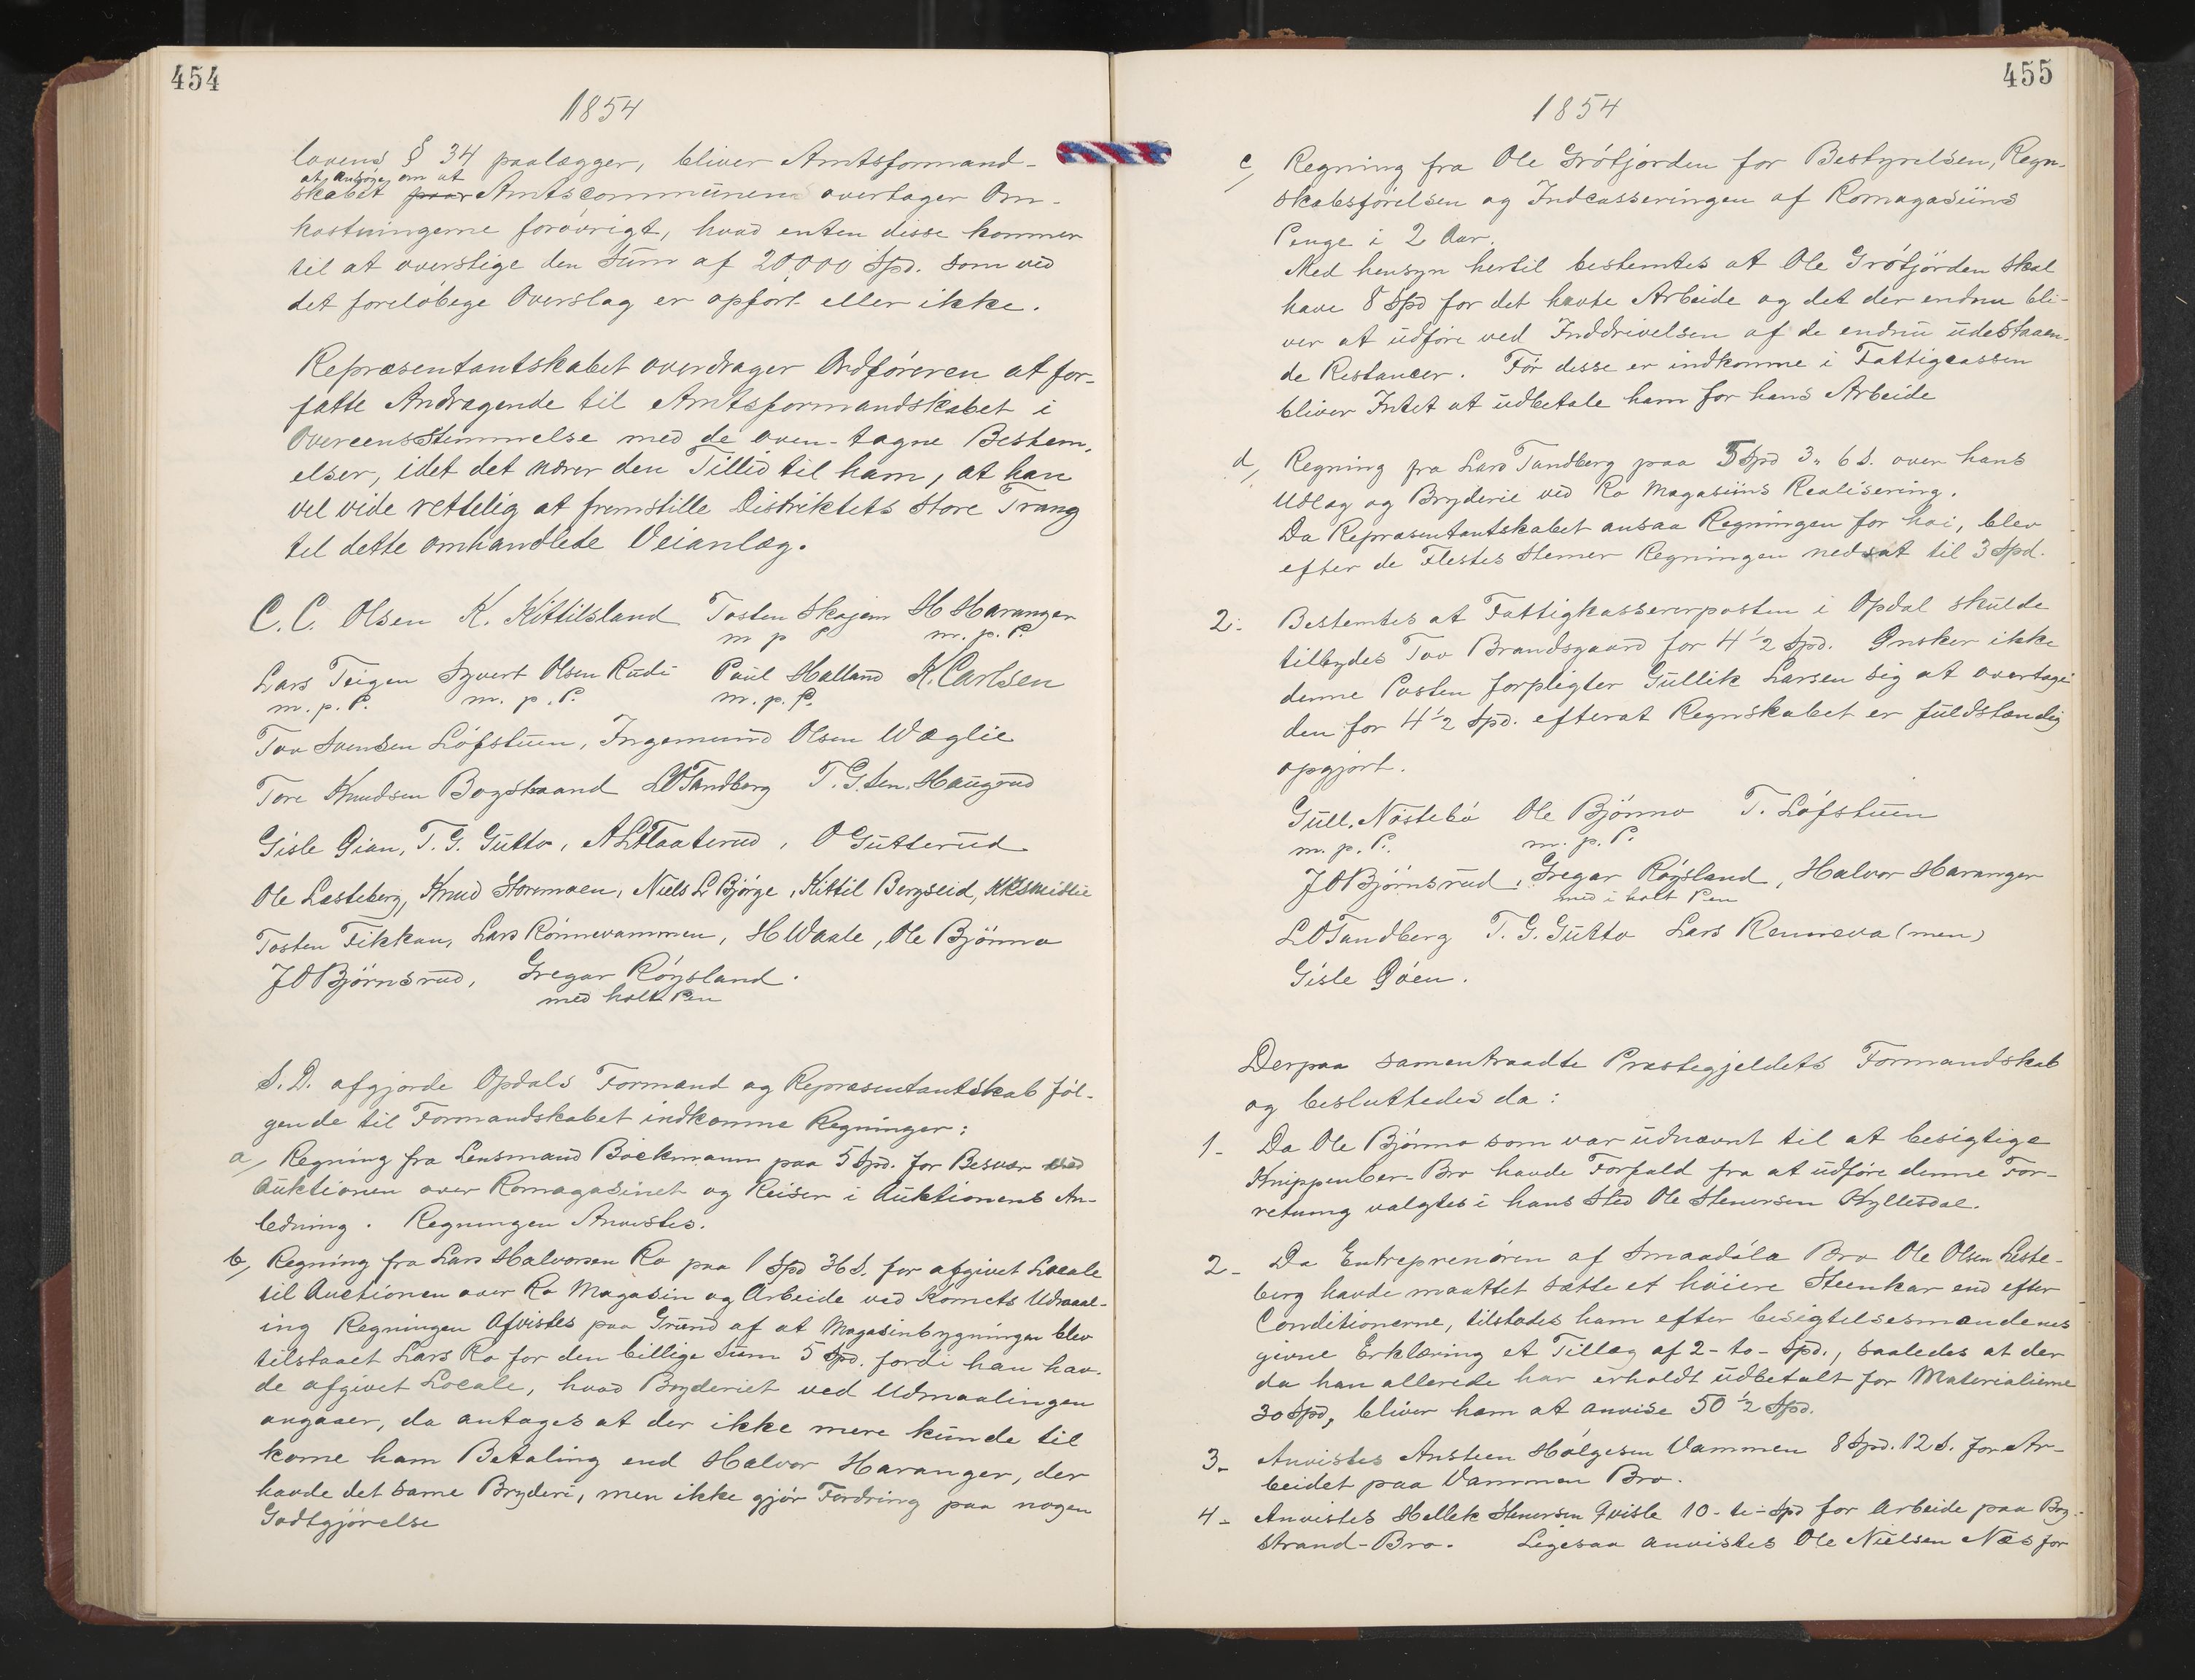 454
1854
lovens § 34 paalægger, bliver Amtsformand-
at ansøge om at
skabet paa Amtscommunen overtager Om-
kostningerne forøvrigt, hvad enten disse kommer
til at overstige den Sum af 20000 Spd. som ved
det foreløbege Overslag er opført eller ikke.
Repræsentantskabet overdrager Ordføreren at for-
fatte Andragende til Amtsformandskabet i
Overeensstemmelse med de oven-tagne Bestem,
elser, idet det nærer den Tillid til ham, at han
vel vide rettelig at fremstille Distriktets Store Trang
til dette omhandlede Veianlæg.
C. C. Olsen K. Kittilsland Tosten Skajem H Haranger
m p P m. p. P.
Lars Teigen Syvert Olsen Rudi Paul Halland K. Carlsen
m. p. P. m. p. P. m. p. P.
Tov Svendsen Løfstuen, Ingemund Olsen Wæglie
Tore Knudsen Bogstrand LOTandberg T. G. sen. Haugrud
Gisle Øian, T. G. Gutto, A L Flaaterud, O Gutterud
Ole Læsteberg, Knud Stormoen, Niels L Bjørge, Kittil Bergseid,
Tosten Fikkan, Lars Rønnevammen, H Waale, Ole Bjønno
J O Bjørnsrud, Gregar Røysland.
med holt Pen
S. D. afgjorde Opdals Formænd og Repræsentantskab føl-
gende til Formandskabet indkomne Regninger:
a/ Regning fra Lensmand Böckmann paa 5 Spd. for Besvær ved
Auktionen over Romagasinet og Reiser i Auktionens An-
ledning. Regningen Anvistes.
b/ Regning fra Lars Halvorsen Ro paa 1 Spd 36 S. for afgivet Locale
til Auctionen over Ro Magasin og Arbeide ved Kornets Udmaal-
ing Regningen Afvistes paa Grund af at Magasinbygningen blev
tilstaaet Lars Ro for den billige Sum 5 Spd. fordi han hav-
de afgivet Locale, hvad Bryderiet ved Udmaalingen
angaaer, da antages at der ikke mere kunde til
kome ham Betaling end Halvor Haranger, der
havde det same Bryderi, men ikke gjør Fordring paa nogen
Godtgjørelse
455
1854
c/ Regning fra Ole Grøtjorden for Bestyrelsen, Regn-
skabsførelsen og Indcasseringen af Romagasiins
Penge i 2 Aar.
Med hensyn hertil bestemtes at Ole Grøtjørden skal
have 8 Spd for det havte Arbeide og det der endnu bli-
ver at udføre ved Inddrivelsen af de endnu udestaaen-
de Restancer. Før disse er indkomne i Fattigcassen
bliver Intet at udbetale ham for hans Arbeide
d/ Regning fra Lars Tandberg paa 5 Spd 3" 6 S. over hans
Udlæg og Bryderie ved Ro Magasiins Realisering.
Da Repræsentantskabet ansaa Regningen for høi, blev
efter de Flestes Stemer Regningen nedsat til 3 Spd.
2. Bestemtes at Fattigkassererposten i Opdal skulde
tilbydes Tov Brandsgaard for 4 1/2 Spd. Ønsker ikke
denne Posten forpligter Gullik Larsen sig at overtage
den for 4 1/2 Spd. efterat Regnskabet er fuldstændig
opgjort.
Gull. Nøstebö Ole Bjönno T. Løfstuen
m. p. P. m. p. P.
J O Bjørnsrud, Gregar Røysland, Halvor Haranger
med i holt Pen
L O Tandberg T. G. Gutto Lars Renneva (men)
Gisle Øóen.
Derpaa samentraadte Præstegjeldets Formandskab
og besluttedes da:
1- Da Ole Bjønno som var udnævnt til at besigtige
Knippenber-Bro havde Forfald fra at udføre denne For-
retning valgtes i hans Sted Ole Stenersen Kyllesdal.
2- Da Entreprenøren af Smaadøla Bro Ole Olsen Leste-
berg havde maattet sætte et høiere Steenkar end efter
Conditionerne, tilstodes ham efter besigtelsesmændenes
givne Erklæring et Tillæg af 2-to-Spd., saaledes at der
da han allerede har erholdt udbetalt for Materialierne
30 Spd, bliver ham at anvise 50 1/2 Spd.
3- Anvistes Ansteen Holgesen Vammen 8 Spd. 12 S. for Ar-
beidet paa Vammen Bro.
4- Anvistes Hellek Stenersen Qvisle 10-ti-Spd for Arbeide paa Bog-
strand-Bro. Ligesaa anvistes Ole Nielsen Næs for